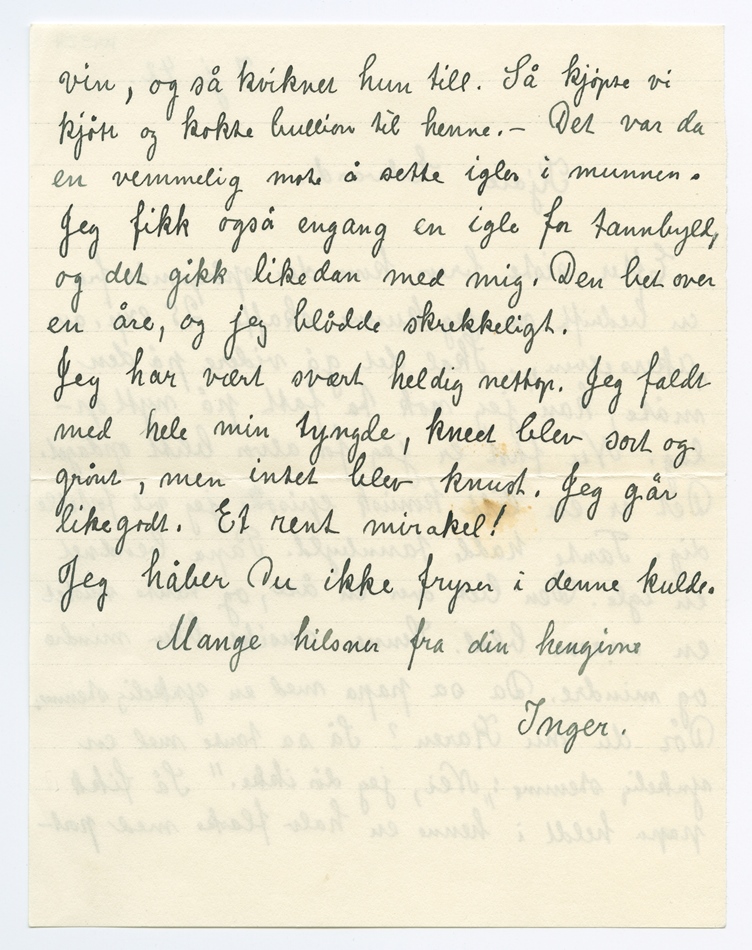 vin, og så kviknet hun till. Så kjøpte vi
kjøtt og kokte bullion til henne. – Det var da
en vemmelig mote å sette igler i munnen.
Jeg fikk også engang en igle for tannbyld,
og det gikk likedan med mig. Den bet over
en åre, og jeg blødde skrekkeligt.
Jeg har vært svært heldig nettop. Jeg faldt
med hele min tyngde, kneet blev sort og
grønt, men intet blev knust. Jeg går
likegodt. Et rent mirakel!
Jeg håber Du ikke fryser i denne kulde.
Mange hilsner fra din hengivne
Inger.